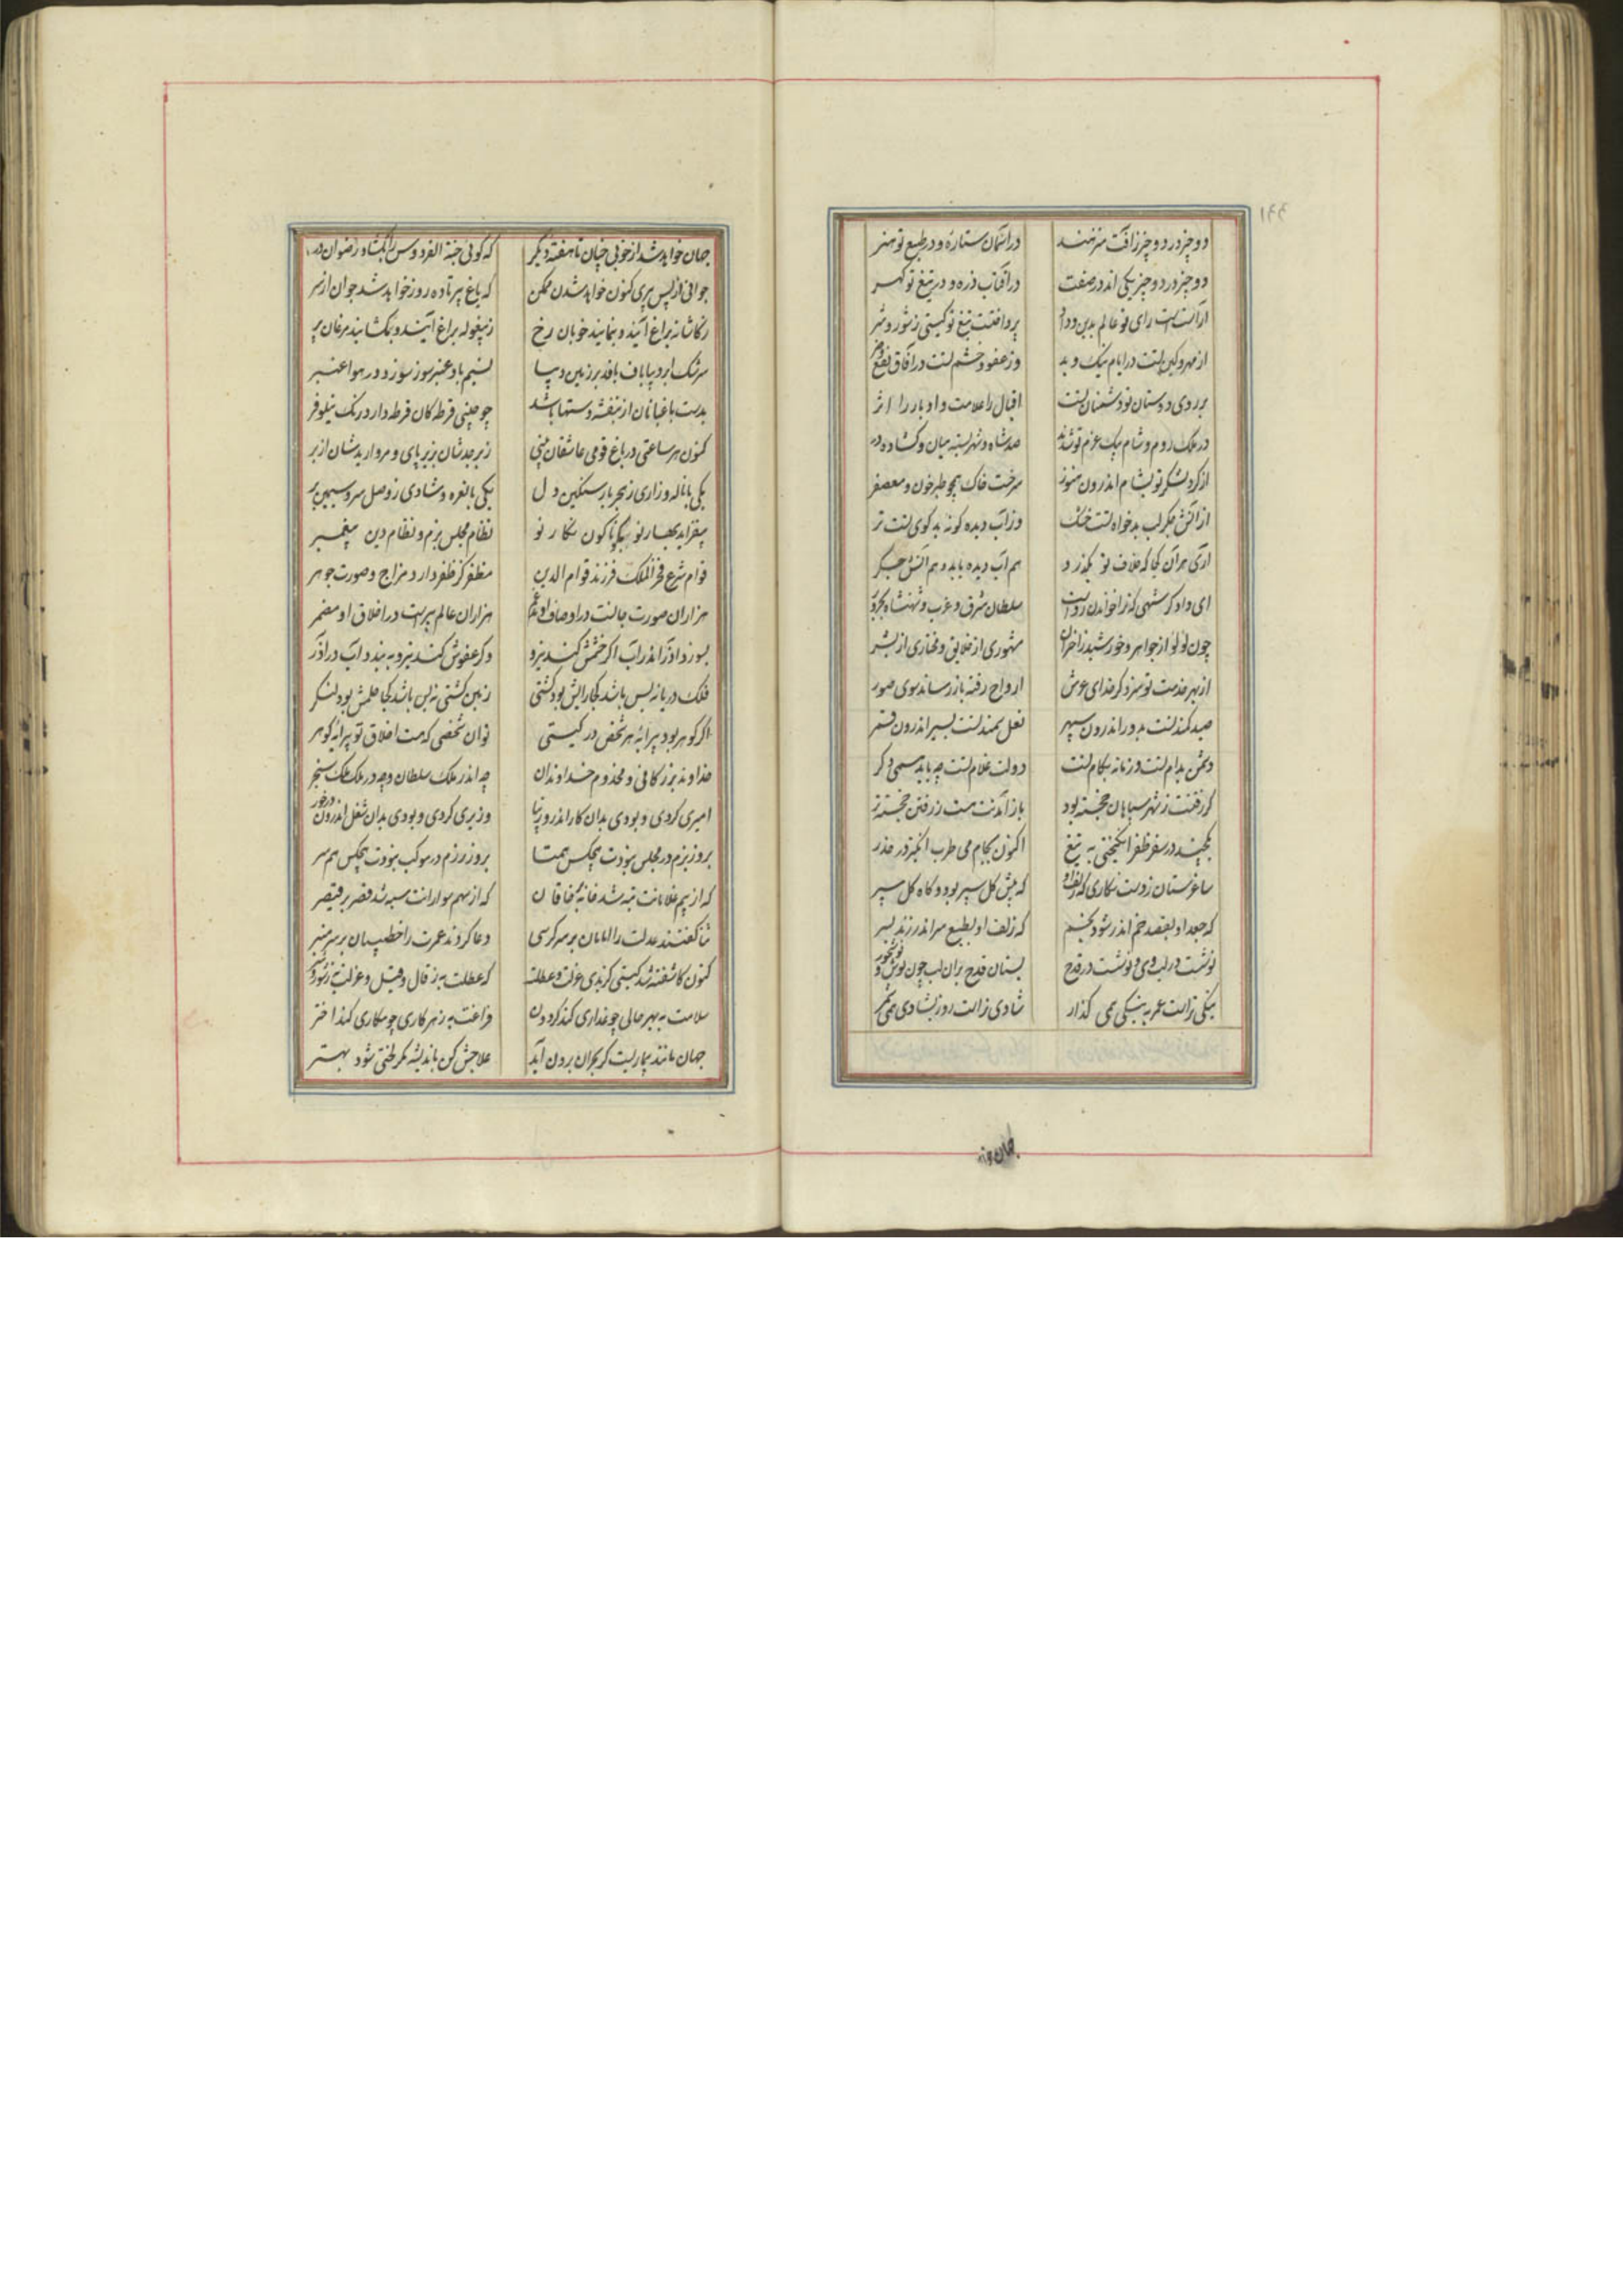 ۱۹۹
دو چیز در دو چیز ز آفت منزهند در آسمان ستاره و در طبع تو هنر
دو چیز در دو چیز یکی اند در صفت در آفتاب ذره و در تیغ تو گهر
آراسته است رای تو عالم بدین و داد پرداختست تیغ تو گیتی ز شور و شر
از مهر و کین تست در ایام نیک و بد وز عفو و خشم تست در آفاق نفع و ضر
بر روی دوستان تو و دشمنان تست اقبال را علامت و ادبار را اثر
در ملک روم و شام بیک عزم تو شدند صد شاه و شهر بسته میان و گشاده در
از گرد لشکر تو بشام اندرون هنوز سرخست خاک همچو طبرخون و معصفر
از آتش جگر لب بدخواه تست خشک وز آب دیده گونه بدگوی تست تر
آری هر آن کجا که خلاف تو بگذرد هم آب دیده باید و هم آتش جگر
ای دادگر شهی که ترا خواندن رواست سلطان شرق و غرب و شهنشاه بحر و بر
چون لولو از جواهر و خورشید از اختران مشهوری از خلایق و مختاری از بشر
از بهر خدمت تو سزد گر خدای عرش ارواح رفته باز رساند سوی صور
صید کمند تست بدور اندرون سپهر نعل سمند تست بسیر اندرون قمر
دشمن بدام تست و زمانه بکام تست دولت غلام تست چه باید همی دگر
گر رفتنت ز شهر سپاهان خجسته بود باز آمدنت هست ز رفتن خجسته تر
یکچند در سفر ظفر انگیختی به تیغ اکنون بجام می طرب انگیز در حضر
ساغر ستان ز دست نگاری که زلف او که پیش گل سپر بود و گاه گل سپر
که جعد او بقصد خم اندر شود بخم که زلف او بطبع سر اندر زند بسر
نوشت در لب وی و نوشت در قدح بستان قدح بران لب چون نوش و نوش خور
نیکی تراست عمر به نیکی همی گذار شادی تراست روز بشادی همی شمر
جهان خواهد شد از خوبی چنان تا هفته دیگر که گوئی جنة الفردوس را بگشاد رضوان در
جوانی از پس پیری کنون خواهد شدن ممکن که باغ پیر تا ده روز خواهد شد جوان از سر
ز کاشانه براغ آیند و بنمایند خوبان رخ ز بیغوله براغ آیند و بگشایند مرغان پر
سرشک ابر دیباباف بافد بر زمین دیبا نسیم باد عنبرسوز سوزد در هوا عنبر
بدست باغبانان از بنفشه دستها باشد چو چینی قرطه کان قرطه دارد رنگ نیلوفر
کنون هر ساعتی در باغ قومی عاشقان بینی زبرجدشان بزیر پای و مرواریدشان از بر
یکی با ناله و زاری ز هجر یار سنگین دل یکی با نعره و شادی ز وصل سرو سیمین بر
بیفزاید بهار نو نظام مجلس بزم و نظام دین پیغمبر
قوام شرع فخر الملک فرزند قوام الدین مظفر کز ظفر دارد مزاج و صورت جوهر
هزاران صورت جانست در اوصاف او مدغم هزاران عالم سریست در اخلاق او مضمر
بسوزد آذر اندر آب اگر خشمش کند نیرو وگر عفوش کند نیرو به بندد آب در آذر
فلک دریا نه بس باشد کجا رایش بود کشتی زمین کشتی نه بس باشد کجا حلمش بود لنگر
اگر گوهر بود پیرایه هر شخص در گیتی توان شخصی که هست اخلاق تو پیرایه گوهر
خداوند بزرگانی و مخدوم خداوندان چه اندر ملک سلطان و چه در ملک ملک سنجر
امیری کردی و بودی بدان کار اندرون زیبا وزیری کردی و بودی بدان شغل اندرون درخور
بروز بزم در مجلس نبودت هیچکس همتا بروز رزم در موکب نبودت هیچکس همسر
که از بیم غلامانت تبه شد خانه خاقان که از سهم سوارانت سیه شد قصر بر قیصر
ثنا گفتند عدلت را امامان بر سر کرسی دعا کردند عمرت را خطیبان بر سر منبر
کنون کاشفته شد گیتی گزیدی عزلت و عطلت که عطلت به ز قال و قیل و عزلت به ز شور و شر
سلامت به بهر حالی چو غداری کند گردون فراغت به ز هر کاری چو مکاری کند اختر
جهان مانند بیماریست کز بحران برون آید علاجش کن باندیشه مگر لختی شود بهتر
جهان خواهد